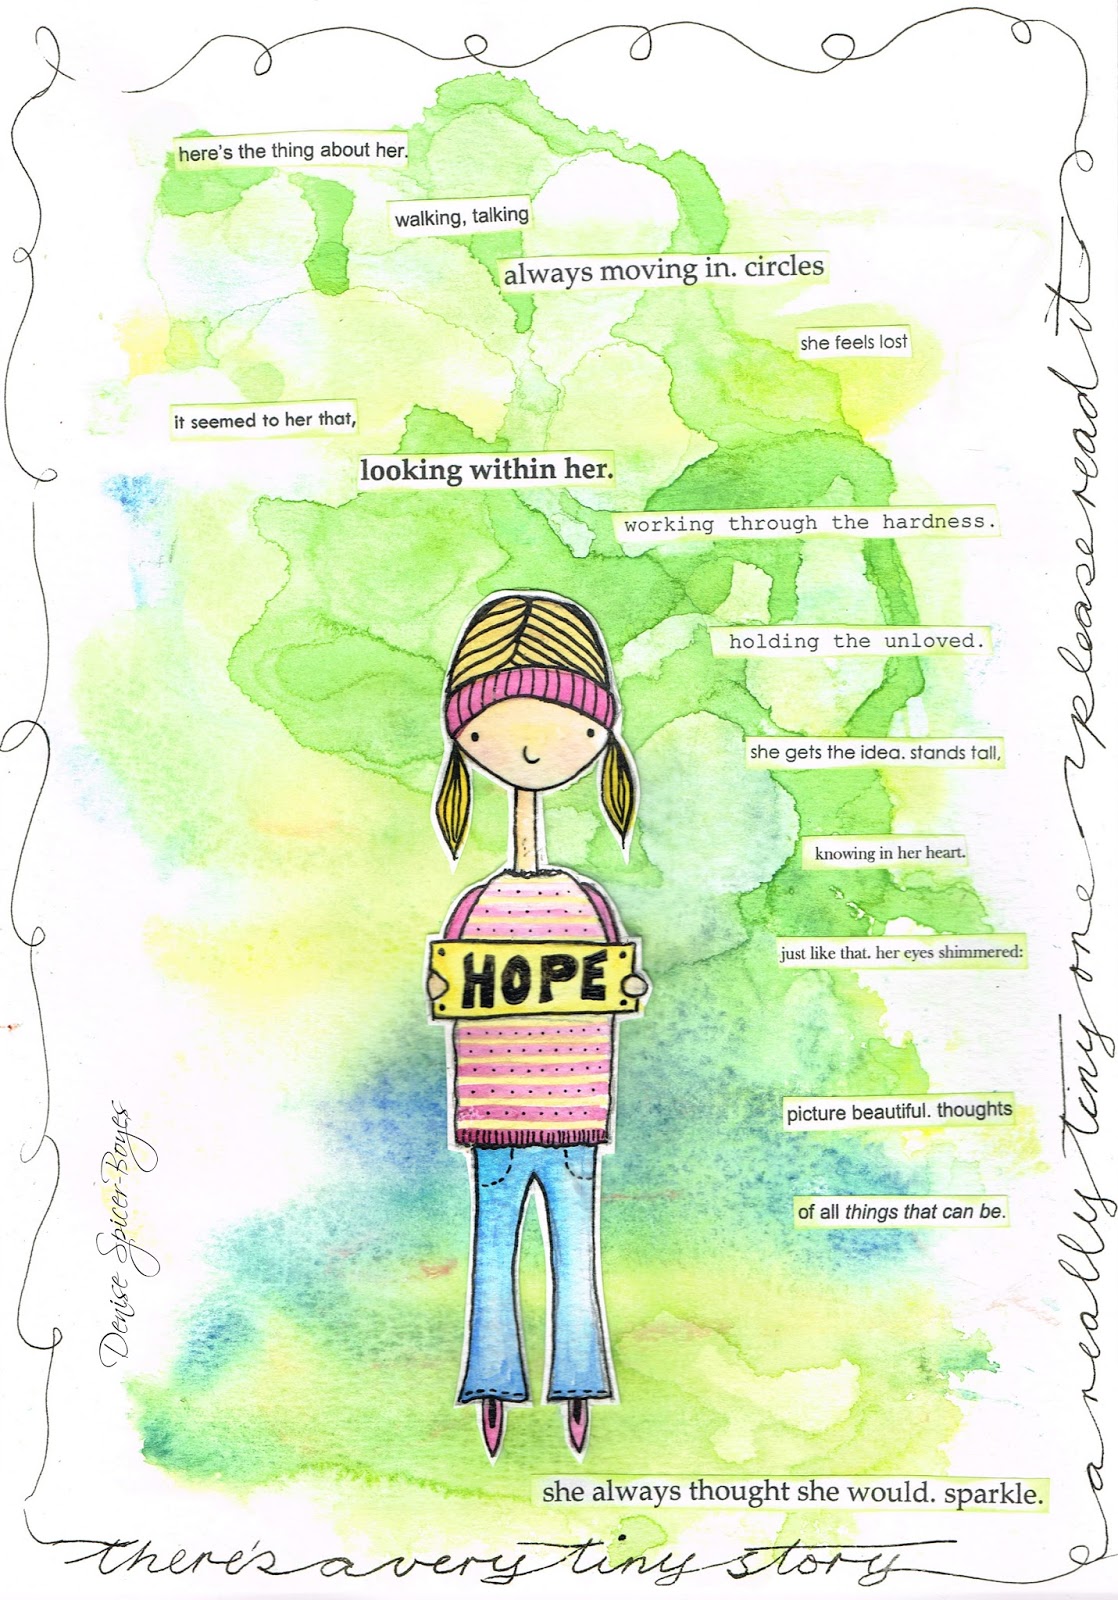 here's the thing about her.
walking, talking
always moving in. circles
she feels lost
it seemed to her that,
looking within her.
working through the hardness.
holding the unloved.
she gets the idea. stands tall,
knowing in her heart.
just like that. her eyes shimmered:
HOPE
picture beautiful. thoughts
of all things that can be.
she always thought she would. sparkle.
Denise Spicer-Boyes
there's a very tiny story
a really tiny one please read it